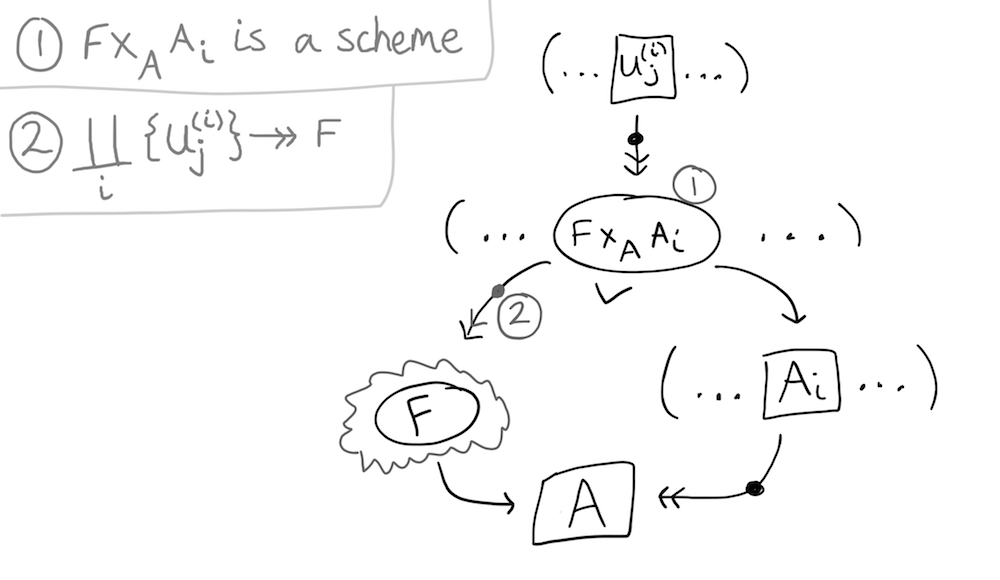 ① F×_A A_i is a scheme
② ∐_i {U_j^(i)} ↠ F
(... U_j^(i) ...)
①
(... F×_A A_i ...)
②
(... A_i ...)
F
A